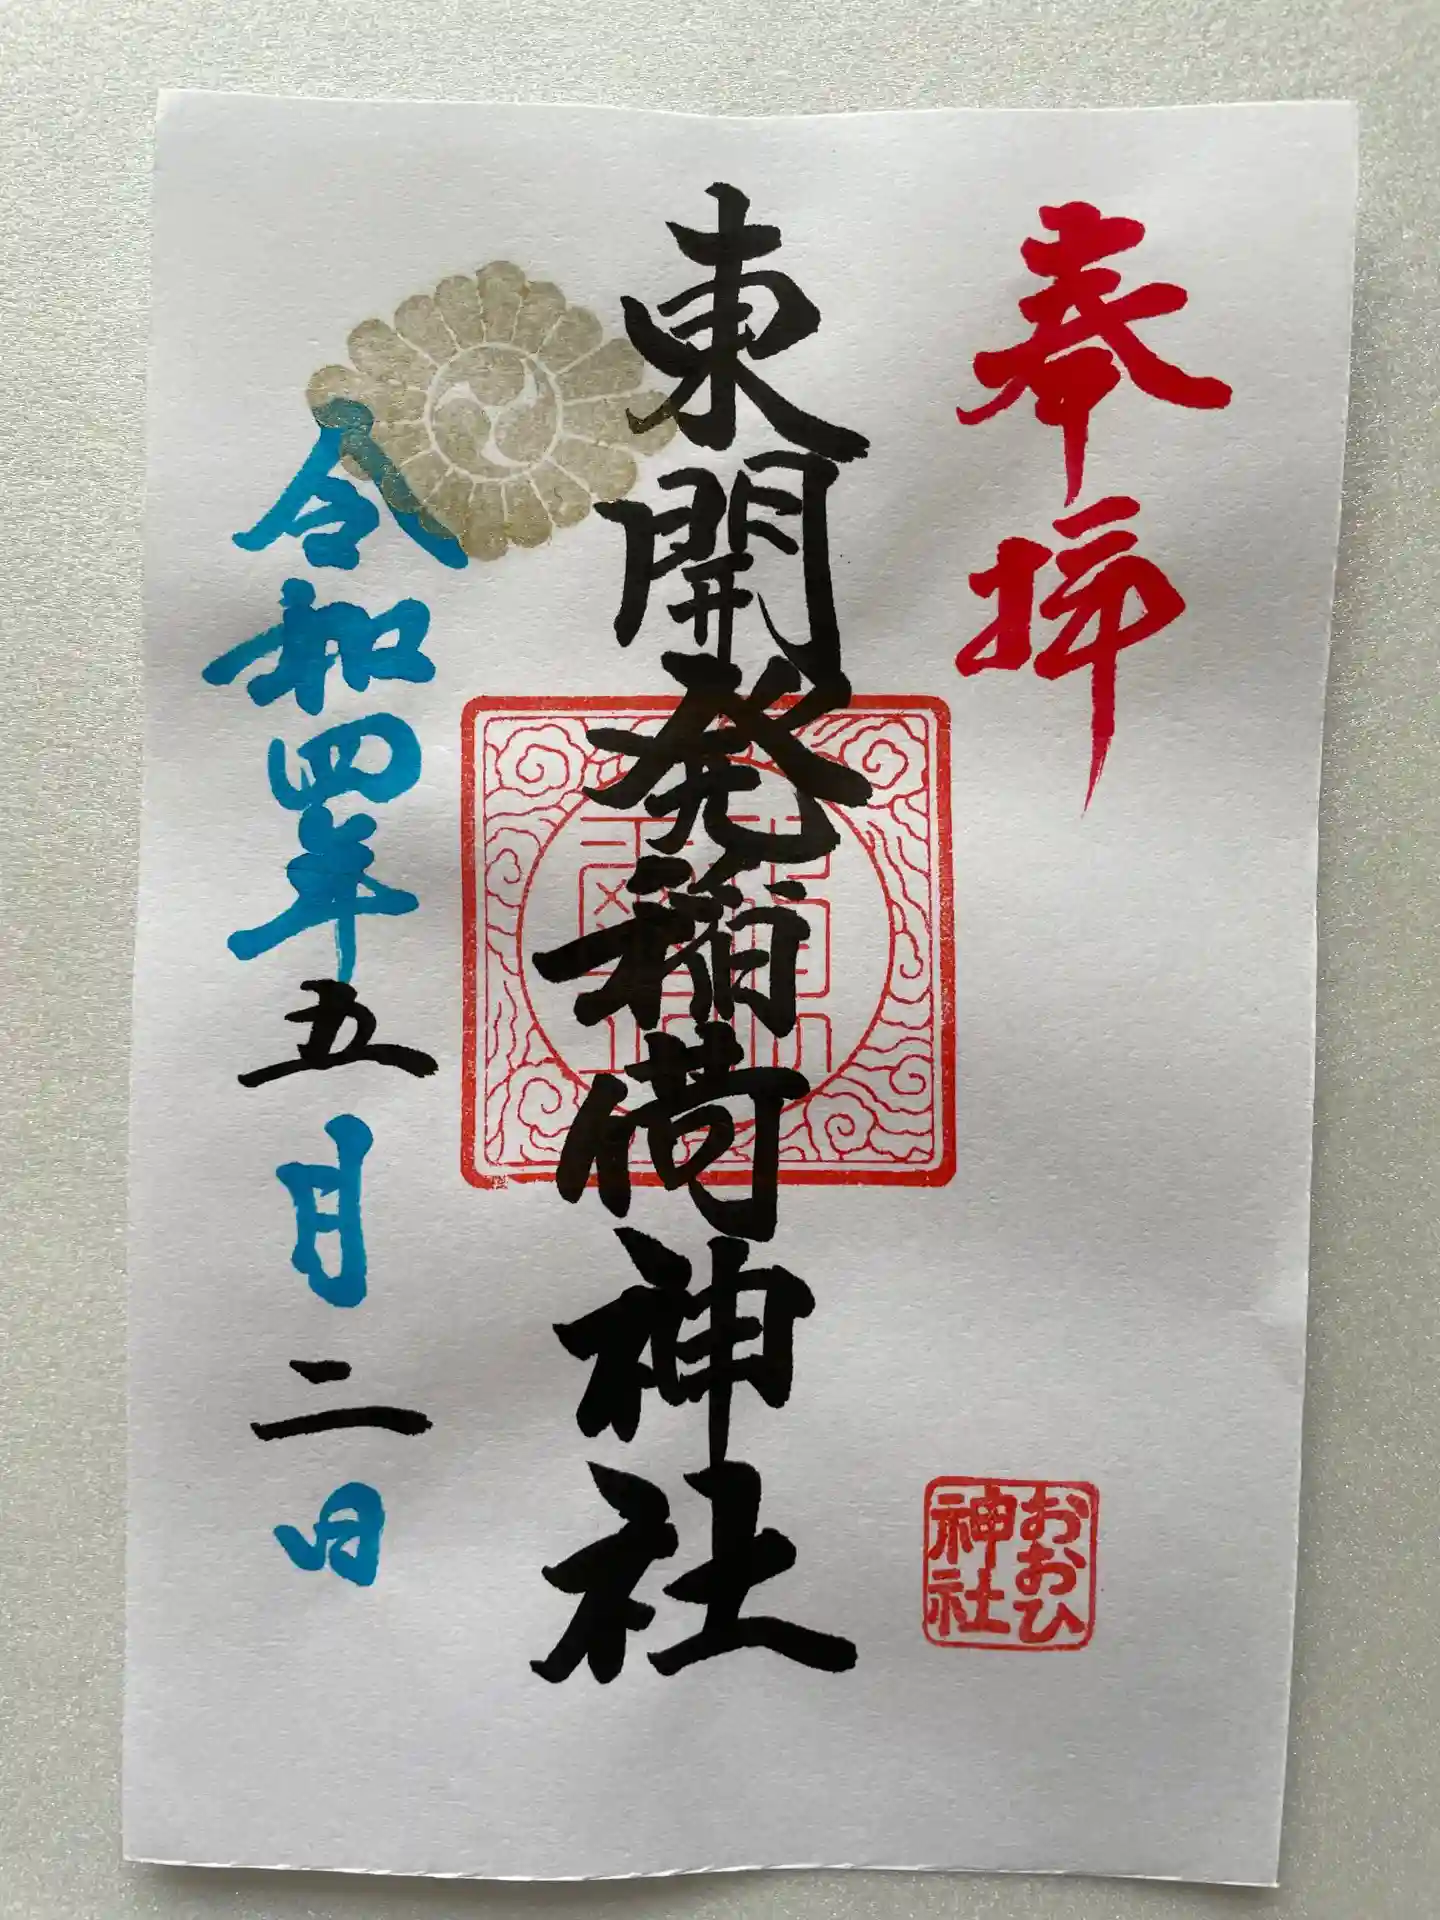 奉拝
東開発稲荷神社
令和四年五月二日
おおひ
神社